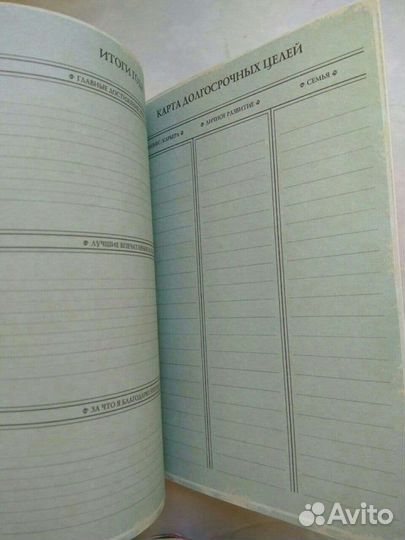 ИТОГИ ГО
ГЛАВНЫЕ ДОСТИЖЕНИ
ЛУЧШИЕ ВПЕЧАТЛЕНИ
ЗА ЧТО Я БЛАГОДАРЕ
КАРТА ДОЛГОСРОЧНЫХ ЦЕЛЕЙ
КАРЬЕРА
ЛИЧНОЕ РАЗВИТИЕ
СЕМЬЯ
Avito